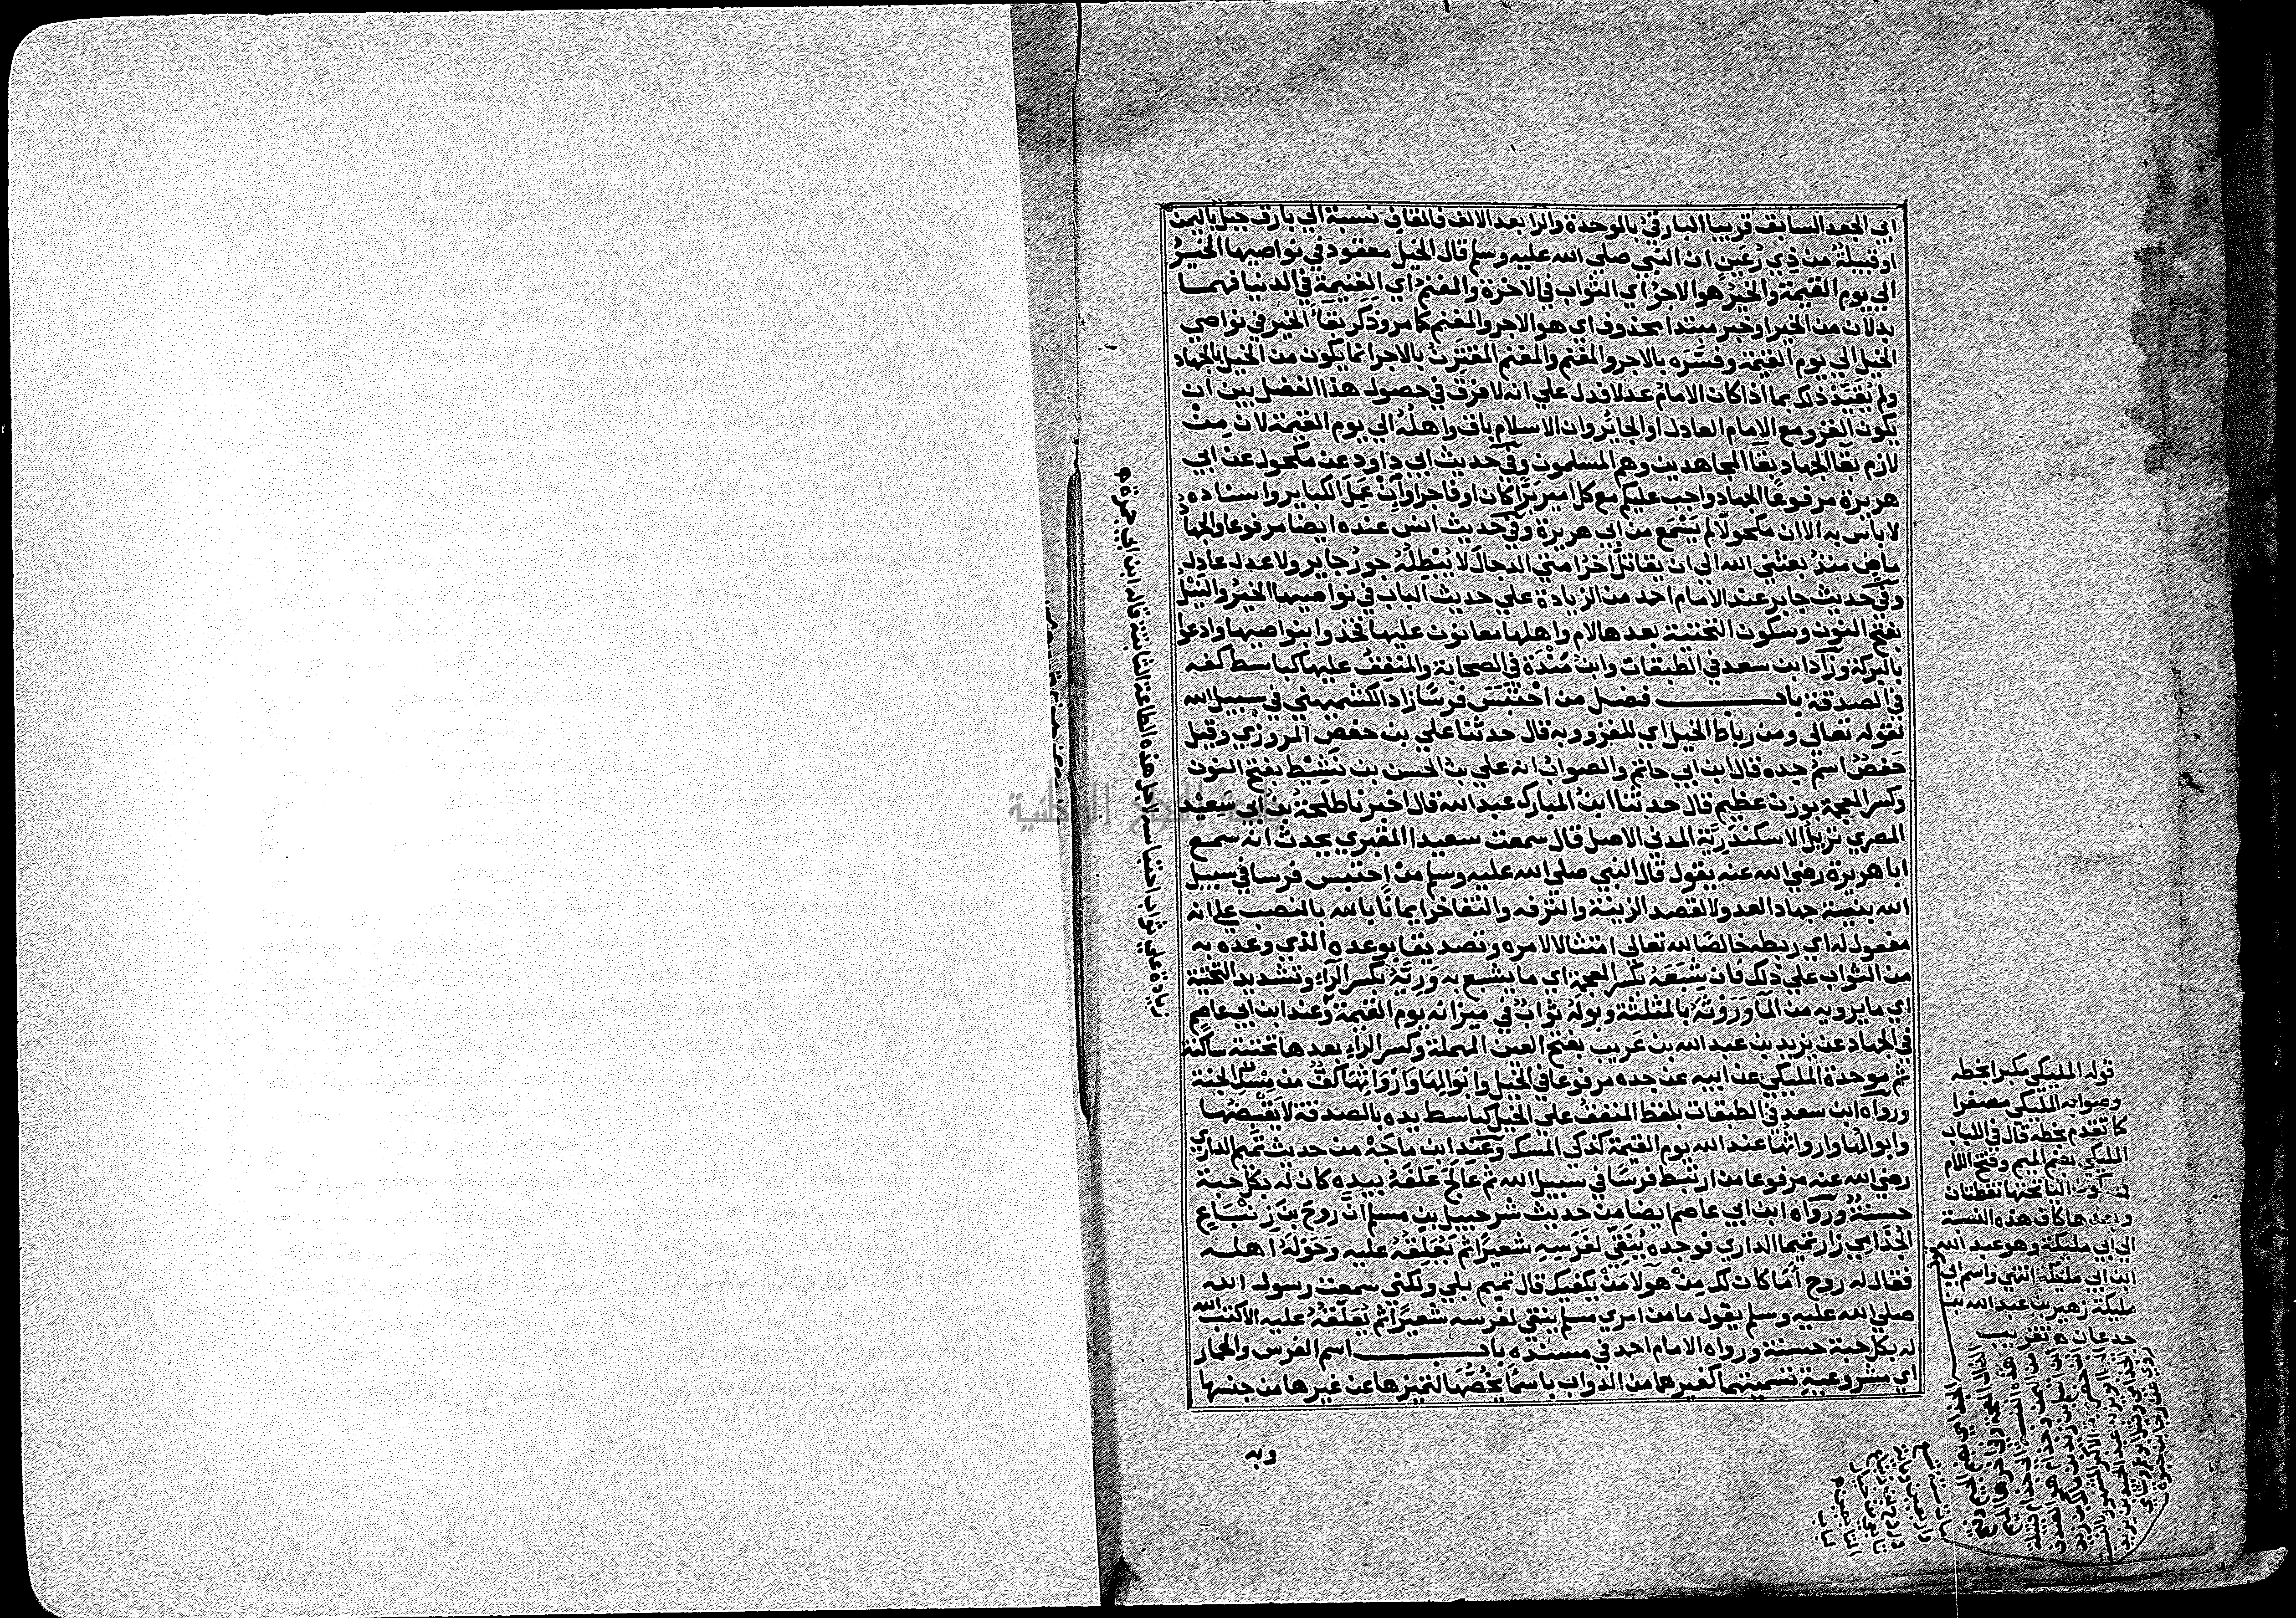 ابي الجعد السابق قريبا البارقي بالموحدة والرا بعد الالف فالقاف نسبة الي بارق جبل باليمن
او قبيلة من ذِي رُعَين ان النبي صلي الله عليه وسلم قال الخيل معقود في نواصيها الخيرُ
الي يوم القيمة والخيرُ هو الاجرُ اي الثواب في الاخرة والمغنمُ اي الغنيمة في الدنيا فهما
بدلان من الخير او خبر مبتدا محذوف اي هو الاجر والمغنم كما مر وذكر بقاءُ الخير في نواصي
الخيل الي يوم القيمة وفسَّرَه بالاجر والمغنم والمغنم المقترنُ بالاجر انما يكون من الخيل بالجهاد
ولم يُقَيِّدْ ذلك بما اذا كان الامامُ عدلا فدل علي انه لا فرق في حصول هذا الفضل بين ان
يكون الغزو مع الامام العادل او الجائر وان الاسلام باق واهلُهُ الي يوم القيمة لان مِنْ
لازم بقا الجهاد بقا المجاهدين وهم المسلمون وفي حديث ابي داود عن مكحول عن ابي
هريرة مرفوعًا الجهاد واجب عليكم مع كل امير بَرًّا كان او فاجرا وَاِنْ عَمِلَ الكباير واسناده
لا باس به الا ان مكحولًا لم يَسْمَع من ابي هريرة وفي حديث انس عنده ايضا مرفوعا والجهادُ
ماضٍ منذُ بعثني الله الي ان يقاتلَ اخرُ امتي الدجالَ لا يُبْطِلُهُ جورُ جاير ولا عدل عادل
وفي حديث جابر عند الامام احمد من الزيادة علي حديث الباب في نواصيها الخيرُ والنَّيْلُ
بفتح النون وسكون التحتية بعدها لام واهلها معانون عليها فخذوا بنواصيها وادعوا
بالبركة وزاد ابن سعد في الطبقات وابن مَنْدَة في الصحابة والمنفِقُ عليها كباسط كفه
في الصدقة باب فضل من احْتَبَسَ فرسًا زاد الكشميهني في سبيل الله
لقوله تعالي ومن رباط الخيل اي للغزو وبه قال حدثنا علي بن حفص المروزي وقيل
حَفصٌ اسمُ جده قال ابن ابي حاتم والصوابُ انه علي بنُ الحسن بن نَشِيْط بفتح النون
وكسر المعجمة بوزن عظيم قال حدثنا ابنُ المبارك عبد الله قال اخبرنا طلحةُ بنُ ابي سَعِيْد
المصري نزيلُ الاسكندَرِيَّة المدني الاصل قال سمعت سعيدا المقبري يحدث انه سمع
ابا هريرة رضي الله عنه يقول قال النبي صلي الله عليه وسلم منْ احتبس فرسا في سبيل
الله بنية جهاد العدو لا لقصد الزينة والترفه والتفاخر ايمانًا بالله بالنصب علي انه
مفعول له اي ربطه خالصًا لله تعالي امتثالا لامره وتصديقا بوعده الذي وعده به
من الثواب علي ذلك فان شِبَعَهُ بكسر المعجمة اي ما يشبع به وَرِيَّهُ بكسر الرَاءِ وتشديد التحتية
اي ما يرويه من المآ وَرَوْثَهُ بالمثلثة وبولَهُ ثوابٌ في ميزانه يوم القيمة وعند ابن ابي عاصم
في الجهاد عن يزيد بن عبد الله بن عَريب بفتح العين المهملة وكسر الراءِ بعدها تحتية ساكنة
ثم موحدة المليكي عن ابيه عن جده مرفوعا في الخيل وابْوَالِهَا وَاَرْوَاثِهَا كَفٌّ من مِسْكِ الجنة
ورواه ابن سعد في الطبقات بلفظ المنفقُ علي الخيل كباسط يده بالصدقة لا يَقْبِضُها
وابوالُها وارواثُها عند الله يوم القيمة كذكي المسك وعند ابن ماجَهْ من حديث تميم الداري
رضي الله عنه مرفوعا من ارتبط فرسًا في سبيل الله ثم عَالَجَ عَلَفَهُ بيده كان له بكل حبة
حسنةٌ ورواه ابن ابي عاصم ايضا من حديث شرحبيل بن مسلم انَّ رَوحَ بنَ زِنْبَاعٍ
الجُذَامِي زار تميما الداري فوجده يُنَقِّي لفَرَسِهِ شعيرًا ثم يَعْلِفُهُ عليه وَحَوْلَهُ اهله
فقال له روح أمَا كان لك مِنْ هَولَا مَنْ يكفيك قال تميم بلي ولكني سمعت رسول الله
صلي الله عليه وسلم يقول ما من امرئ مسلم ينقي لفرسه شعيرًا ثم يُعَلِّفُهُ عليه الا كتب الله
له بكل حبة حسنة ورواه الامام احمد في مسنده باب اسم الفرس والحمار
اي مشروعيةِ تسميتهما كغيرهما من الدواب باسمآ تخصُّها لتميزها عن غيرها من جنسها
وبه
زيادة علي ثواب احتباسه لاجل هذه الطاعة الثابتة قاله ابن ابي جمرة م
قوله المليكي مكبر بخطه
وصوابه المليكي مصغرا
كما تقدم بخطه قال في اللباب
المليكي بضم الميم وفتح اللام
وسكون اليا تحتها نقطتان
وبعدها كاف هذه النسبة
الي ابي مليكة وهو عبد الله
ابن ابي مليكة انتهي واسم ابي
مليكة زهير بن عبد الله بن
جدعان م تقريب